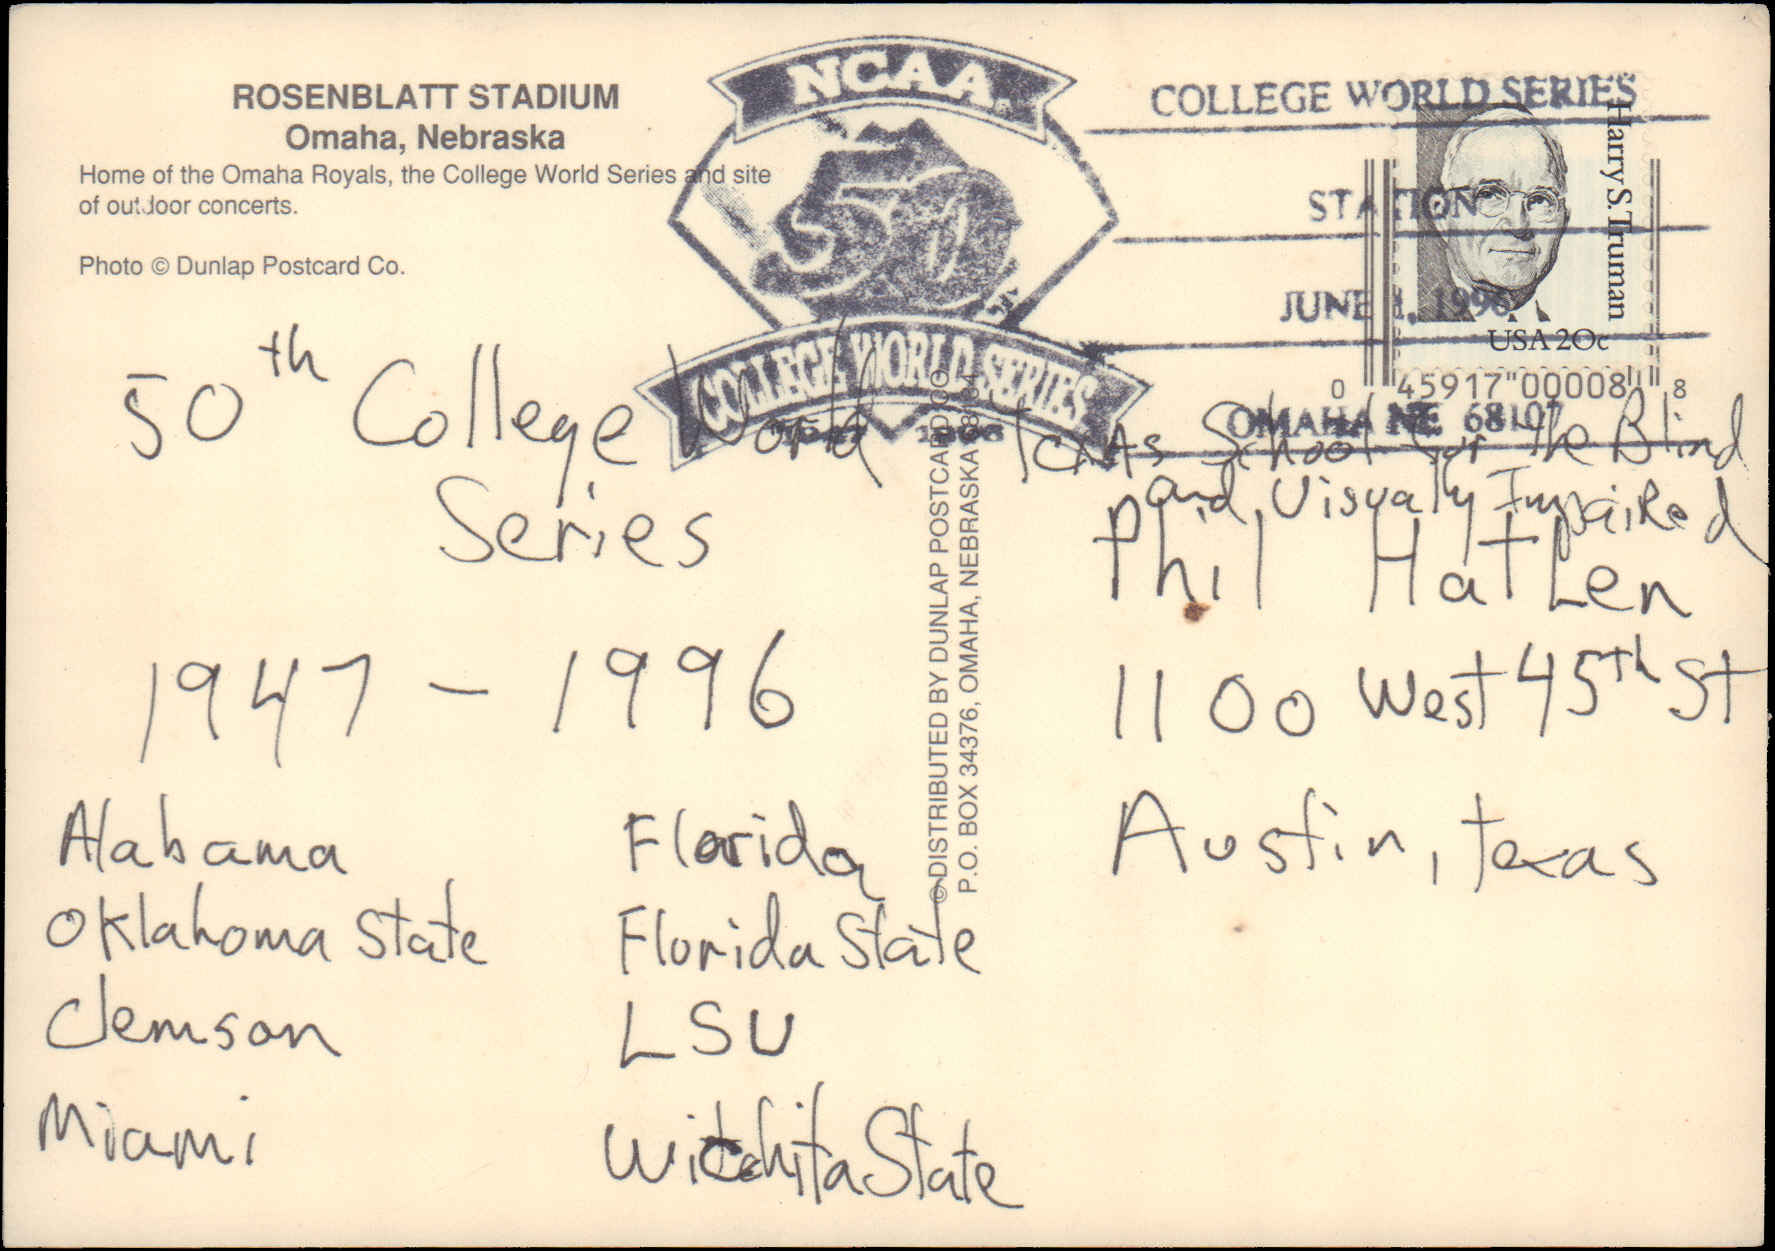 ROSENBLATT STADIUM
Omaha, Nebraska
Home of the Omaha Royals, the College World Series and site
of outdoor concerts.
Photo © Dunlap Postcard Co.
NCAA
50
COLLEGE WORLD SERIES
1947 1996
COLLEGE WORLD SERIES
STATION
JUNE 1, 1996
OMAHA NE 68107
Harry S. Truman
USA 20c
0 45917"00008 8
50th College World
Series
1947 - 1996
Alabama
Oklahoma State
Clemson
Miami
Florida
Florida State
LSU
Witchita State
©DISTRIBUTED BY DUNLAP POSTCARD CO.
P.O. BOX 34376, OMAHA, NEBRASKA 68134
Texas School for the Blind
and Visually Impaired
Phil Hatlen
1100 West 45th St
Austin, Texas